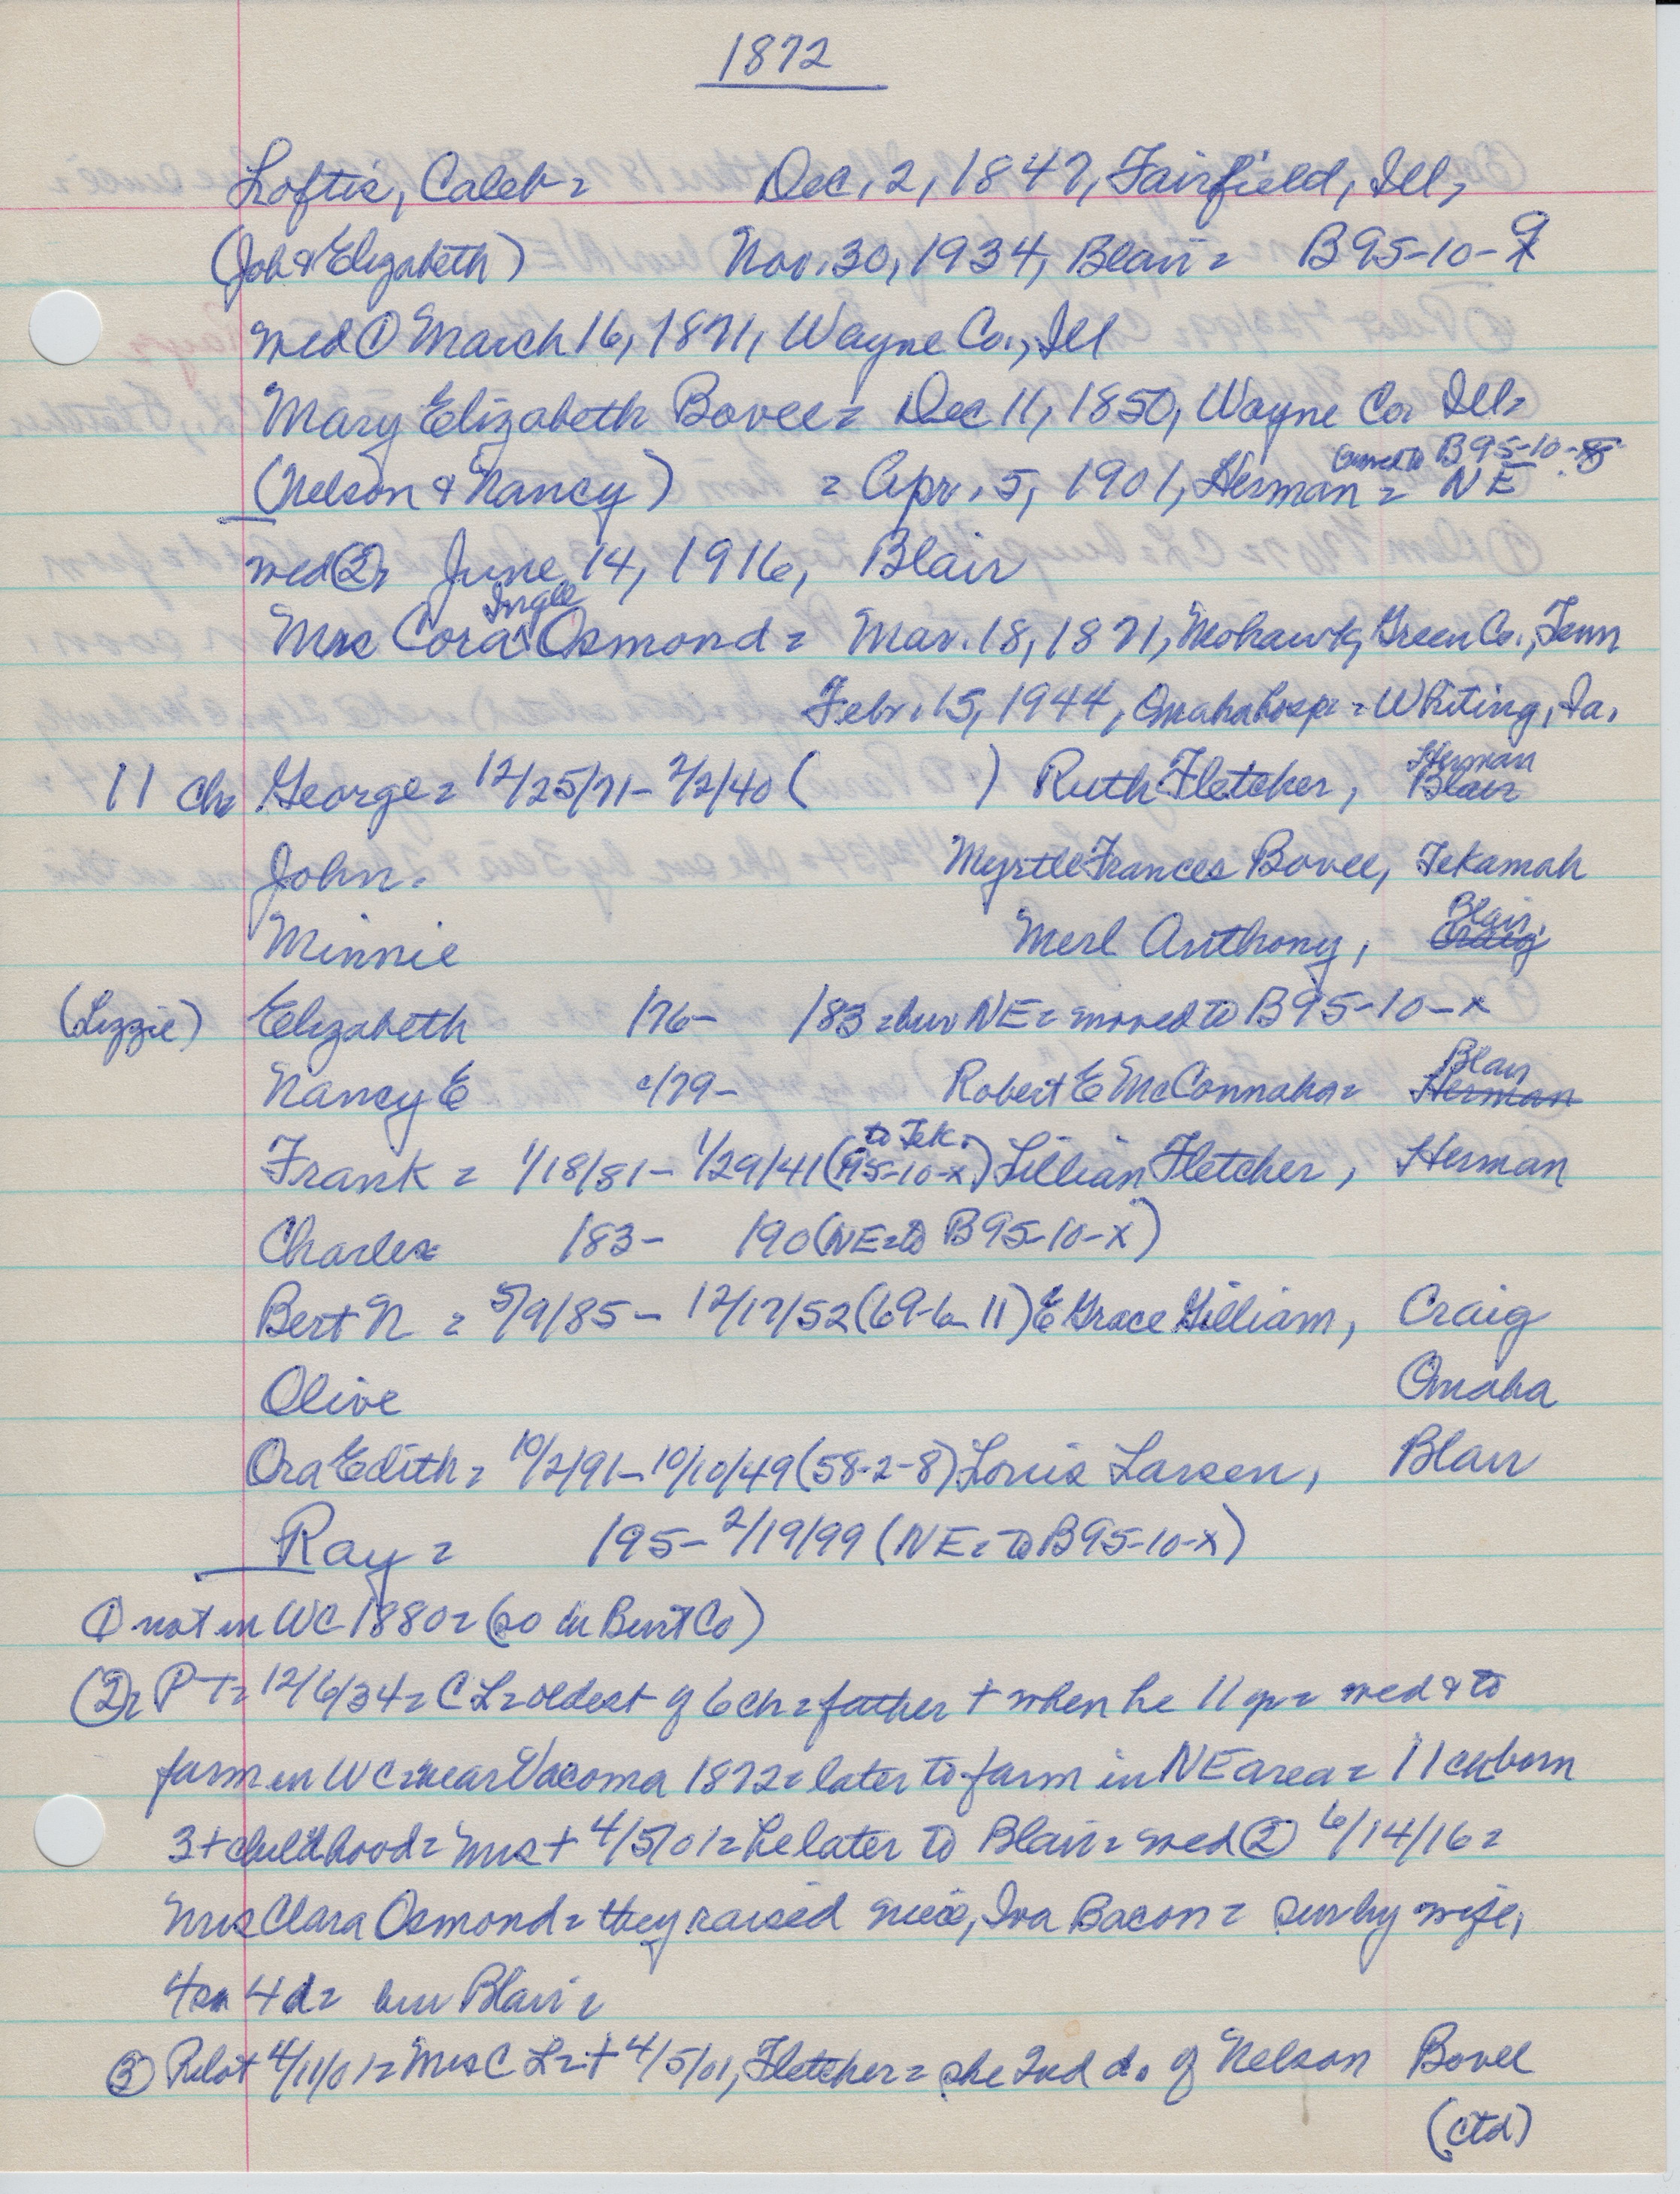 1872
Loftis, Caleb = Dec. 2, 1847, Fairfield, Ill,
(Job & Elizabeth) Nov. 30, 1934, Blair = B95-10-9
med ① March 16, 1871, Wayne Co., Ill
Mary Elizabeth Bovee = Dec 11, 1850, Wayne Co Ill =
(Nelson & Nancy) = Apr. 5, 1901, Herman = NE moved to B95-10-8
med ②, June 14, 1916, Blair
Mrs Cora Ingle Osmond = Mar. 18, 1871, Mohawk, Green Co., Tenn
Febr. 15, 1944, Omaha hosp = Whiting, Ia.
11 ch = George = 12/25/71 - 2/2/40 ( ) Ruth Fletcher, Herman Blair
John. Myrtle Frances Bovee, Tekamah
Minnie Merl Anthony, Blair, Craig
(Lizzie) Elizabeth 176- 183 = bur NE = moved to B95-10-x
Nancy E c/79- Robert E McConnaha = Blair Herman
Frank = 1/18/81 - 1/29/41 (95-10-x) to Tek. Lillian Fletcher, Herman
Charles 183- 190 (NE = to B95-10-x)
Bert N = 5/9/85 - 12/17/52 (69-6-11) E Grace Gilliam, Craig
Olive Omaha
Ora Edith = 10/2/91 - 10/10/49 (58-2-8) Louis Larsen, Blair
Ray = 195- 2/19/99 (NE = to B95-10-x)
① not in WC 1880 = (so in Burt Co)
②, PT = 12/6/34 = CL = oldest of 6 ch = father + when he 11 yr = med & to
farm in WC = near Vacoma 1872 = later to farm in NE area = 11 ch born
3 + childhood = Mrs + 4/5/01 = he later to Blair = med ② 6/14/16 =
Mrs Clara Osmond = they raised niece, Iva Bacon = sur by wife,
4 sn 4 d = bur Blair =
③ Pilot 4/11/01 = Mrs CL = + 4/5/01, Fletcher = she 2nd d. of Nelson Bovee
(ctd)